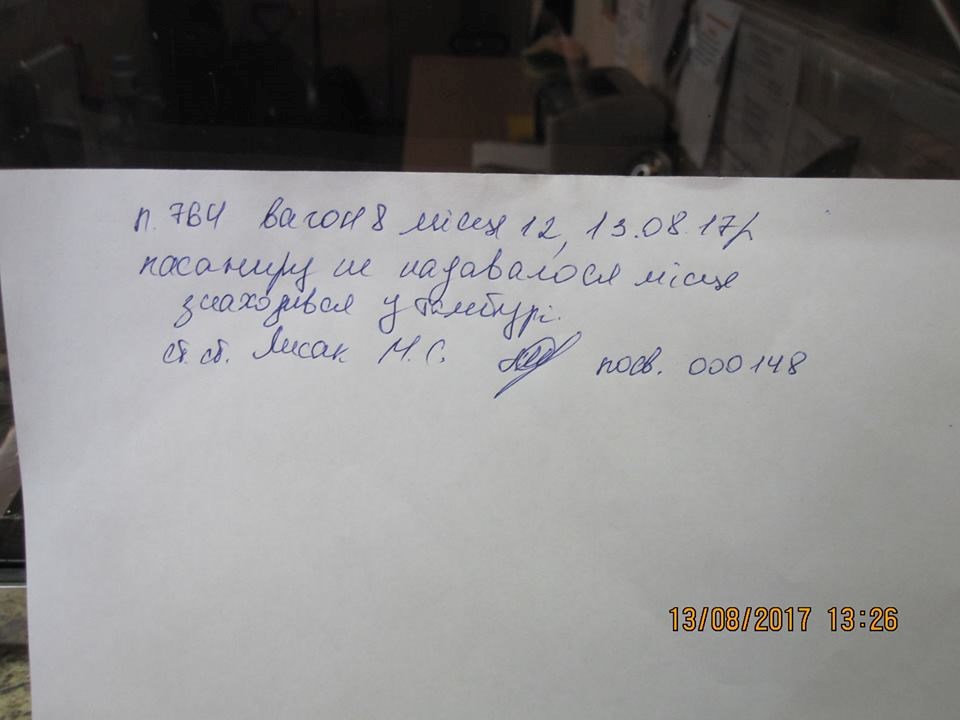 п. 764 вагон 8 місце 12, 13.08.17р
пасажиру не надавалося місце
знаходився у тамбурі.
ст. ст. Лисак М. С. посв. 000148
13/08/2017 13:26